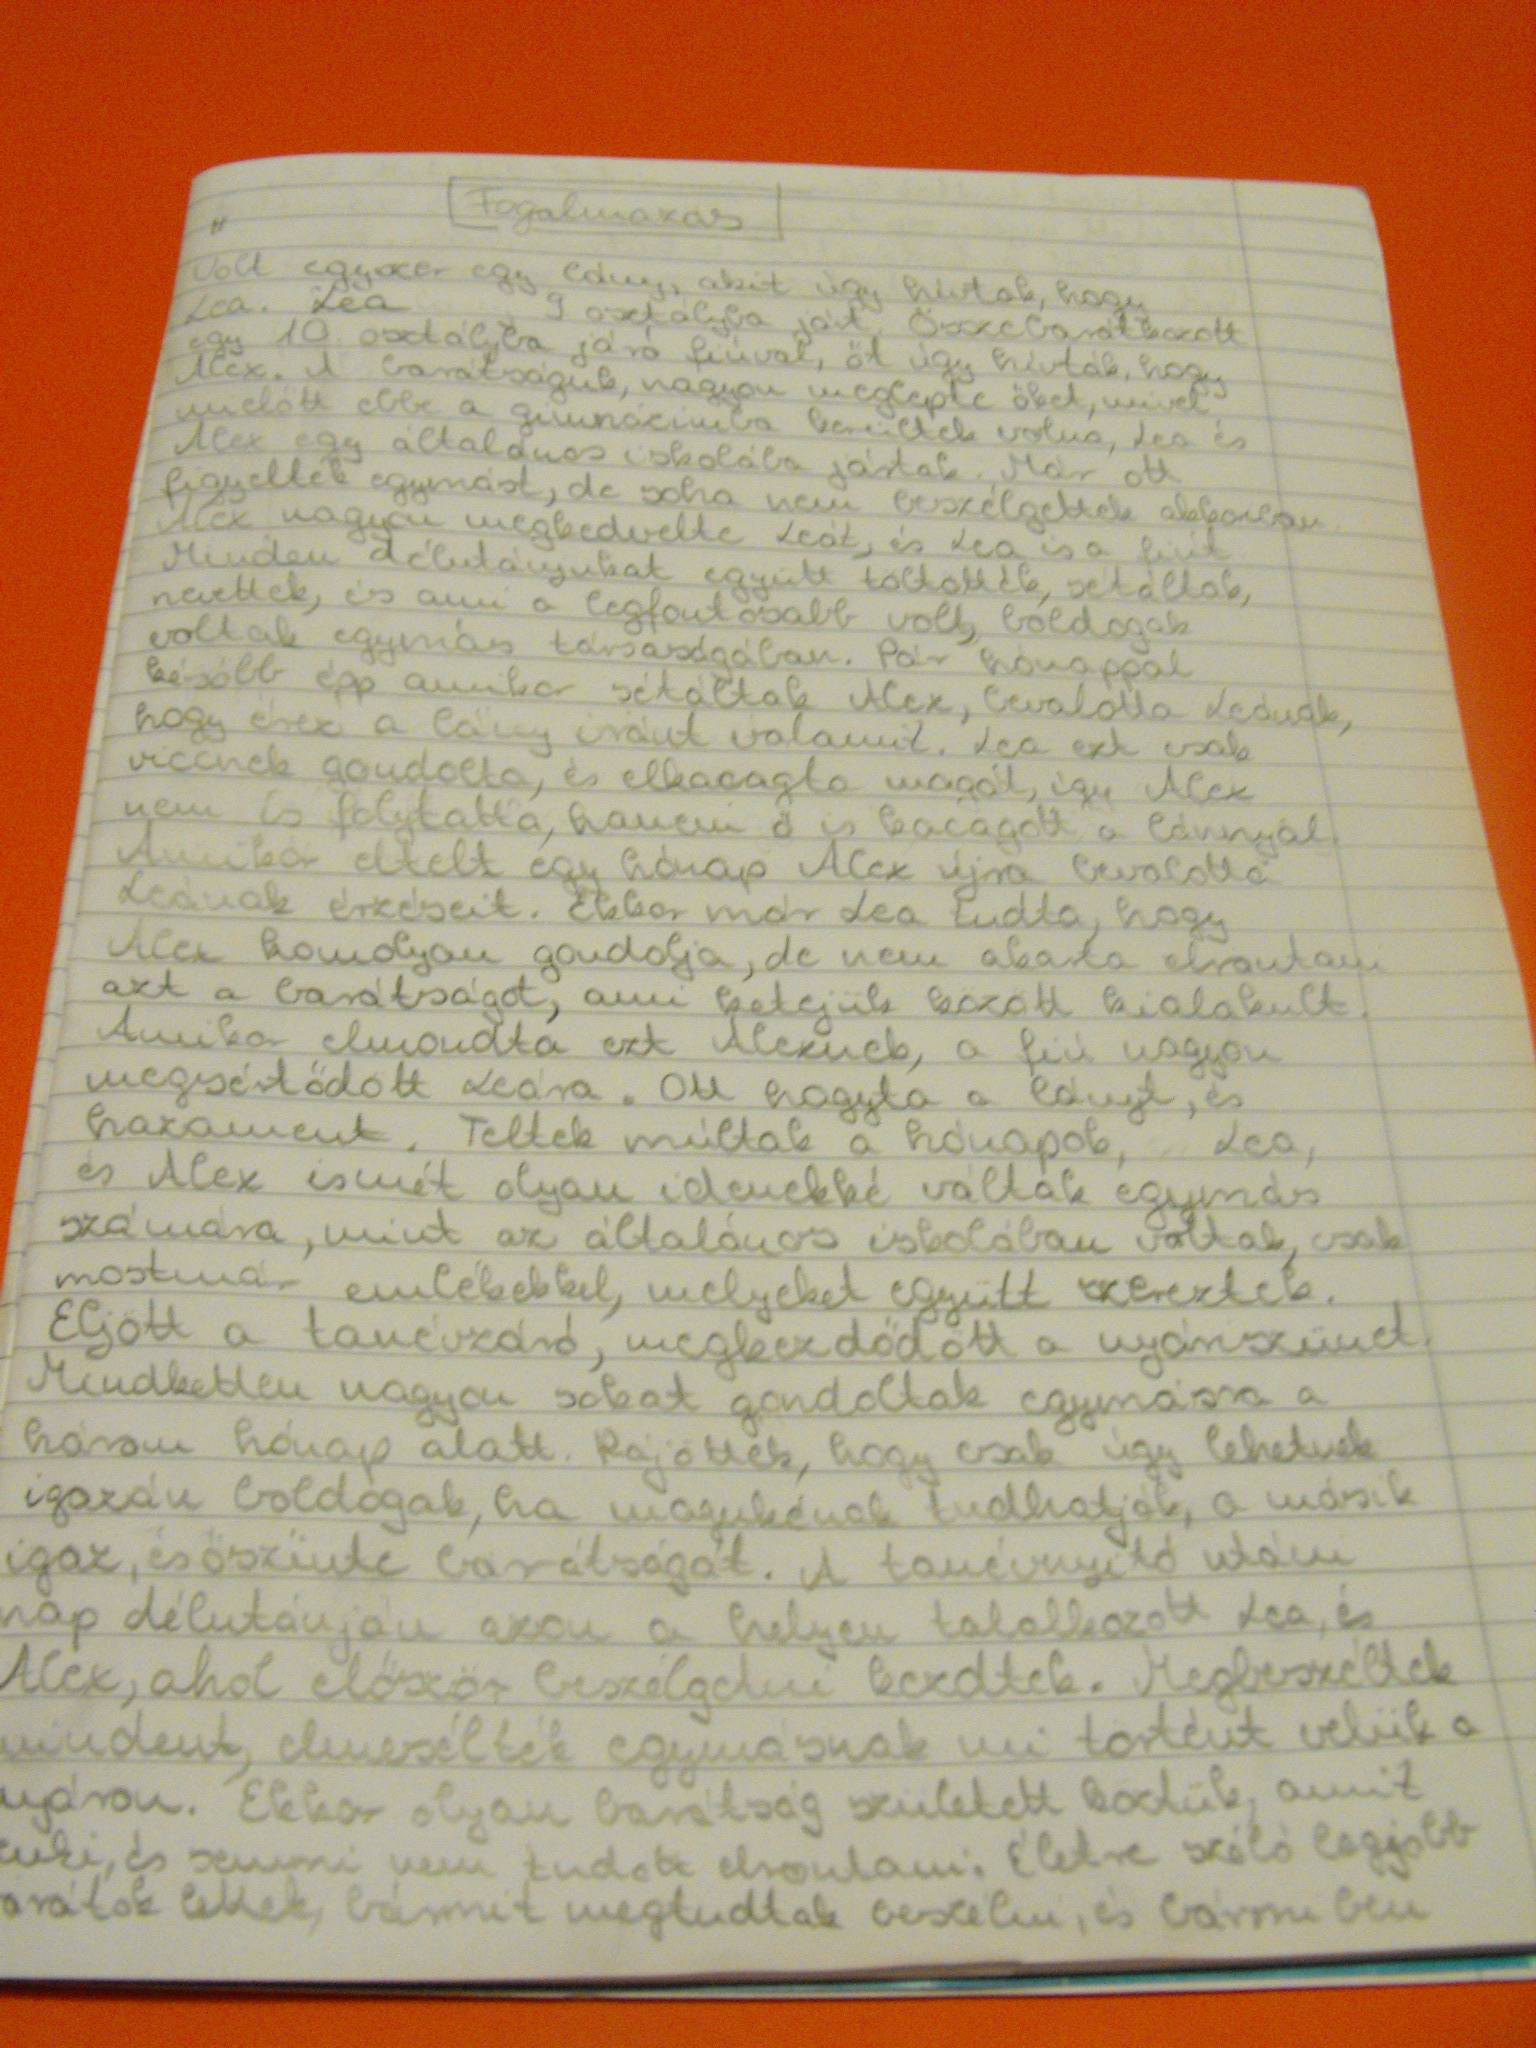 Fogalmazás
"
Volt egyszer egy lány, akit úgy hívtak, hogy
Lea. Lea 9 osztályba járt. Összebarátkozott
egy 10. osztályba járó fiúval, őt úgy hívták, hogy
Alex. A barátságuk, nagyon meglepte őket, mivel
mielőtt ebbe a gimnáziumba kerültek volna, Lea és
Alex egy általános iskolába jártak. Már ott
figyelték egymást, de soha nem beszélgettek akkoriban.
Alex nagyon megkedvelte Leát, és Lea is a fiút.
Minden délutánjukat együtt töltötték, sétáltak,
nevettek, és ami a legfontosabb volt, boldogak
voltak egymás társaságában. Pár hónappal
később épp amikor sétáltak Alex, bevalotta Leának,
hogy érez a lány iránt valamit. Lea ezt csak
viccnek gondolta, és elkacagta magát, így Alex
nem is folytatta, hanem ő is kacagott a lánnyal.
Amikor eltelt egy hónap Alex újra bevalotta
Leának érzéseit. Ekkor már Lea tudta, hogy
Alex komolyan gondolja, de nem akarta elrontani
azt a barátságot, ami ketejük között kialakult.
Amikor elmondta ezt Alexnek, a fiú nagyon
megsértődött Leára. Ott hagyta a lányt, és
hazament. Teltek múltak a hónapok, Lea,
és Alex ismét olyan idenekké váltak egymás
számára, mint az általános iskolában voltak, csak
mostmár emlékekkel, melyeket együtt szereztek.
Eljött a tanévzáró, megkezdődött a nyáriszünet.
Mindketten nagyon sokat gondoltak egymásra a
három hónap alatt. Rájöttek, hogy csak úgy lehetnek
igazán boldogak, ha magukénak tudhatják, a másik
igaz, és őszinte barátságát. A tanévnyitó utáni
nap délutánján azon a helyen talalkozott Lea, és
Alex, ahol először beszélgetni kezdtek. Megbeszéltek
mindent, elmesélték egymásnak mi történt velük a
nyáron. Ekkor olyan barátság született köztük, amit
senki, és semmi nem tudott elrontani. Életre szóló legjobb
barátok lettek, bármit megtudtak beszélni, és bármiben